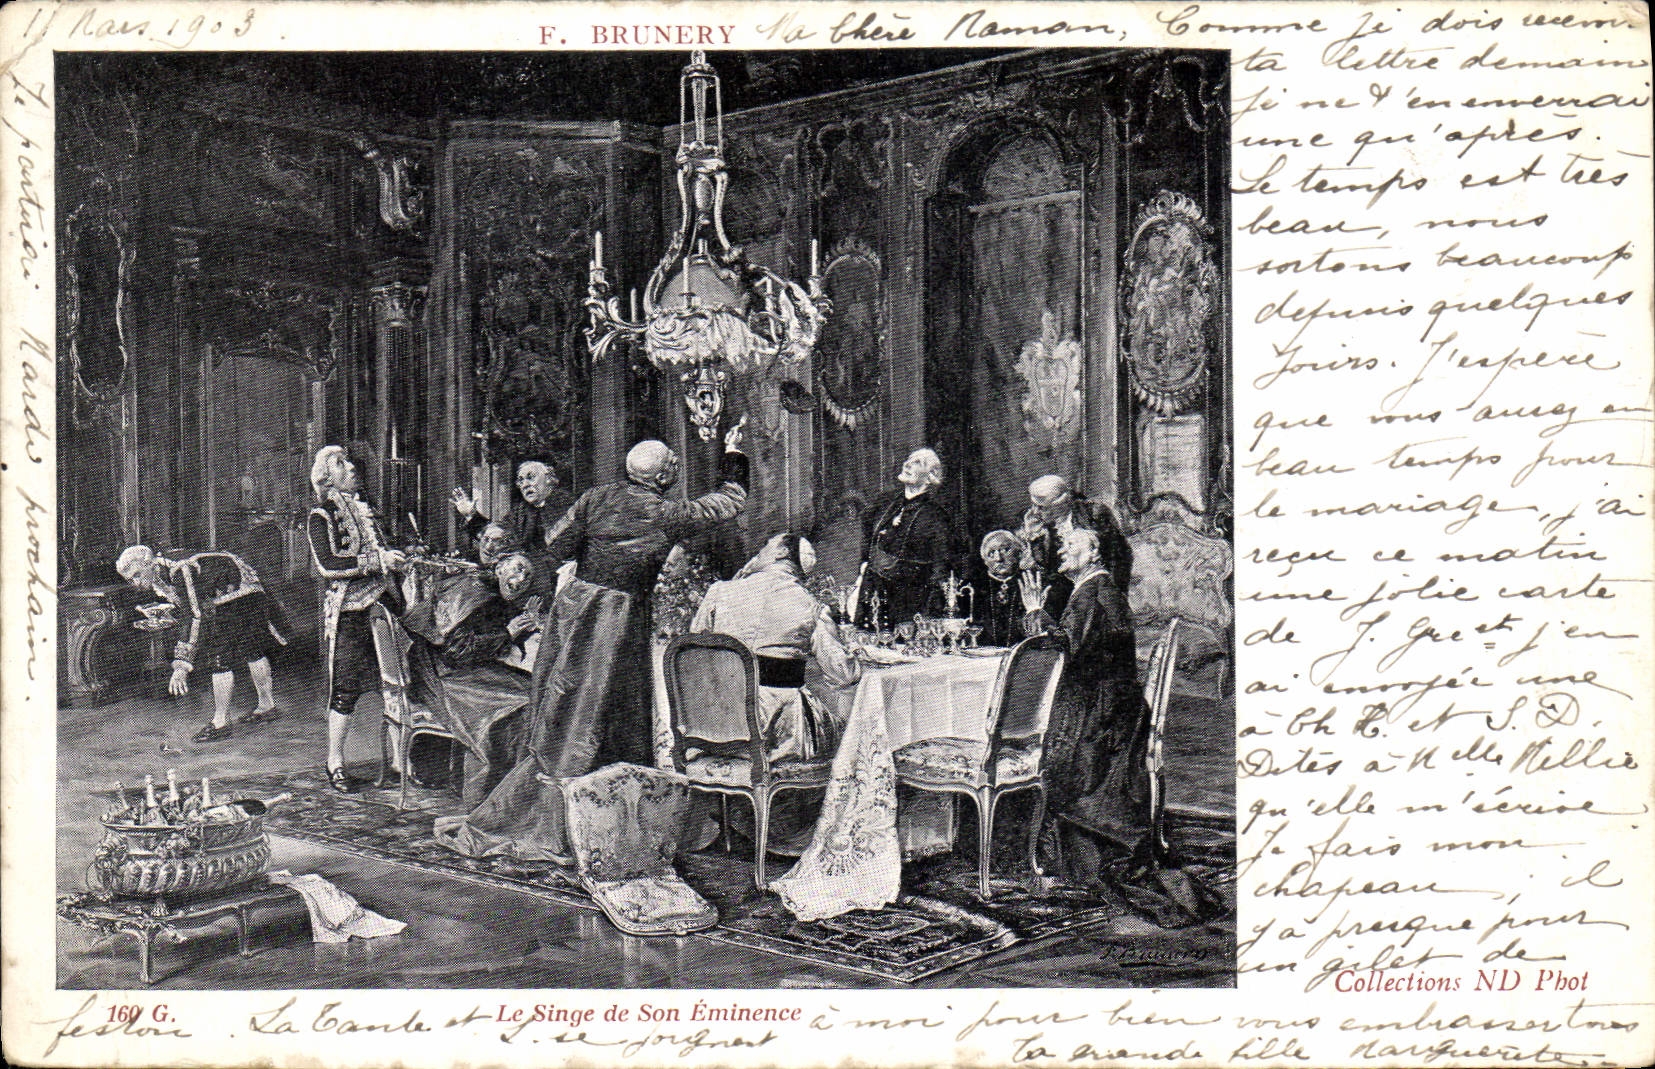 11 Mars 1903.
F. BRUNERY
Ma Chère Maman, Comme je dois recevoir
ta lettre demain
je ne t'en enverrai
une qu'après.
Le temps est très
beau, nous
sortons beaucoup
depuis quelques
jours. J'espère
que vous aurez un
beau temps pour
le mariage, j'ai
reçu ce matin
une jolie carte
de J. Gre et j'en
ai envoyée une
à Ch H. et S. D.
Dites à Melle Nellie
qu'elle m'écrive
Je fais mon
chapeau, il
y a presque pour
un gilet de
feston. La Tante et L. se joignent à moi pour bien vous embrasser tous
Ta grande fille Marguerite.
Je partirai Mardi prochain.
F. Brunery
Collections ND Phot
160 G.
Le Singe de Son Éminence